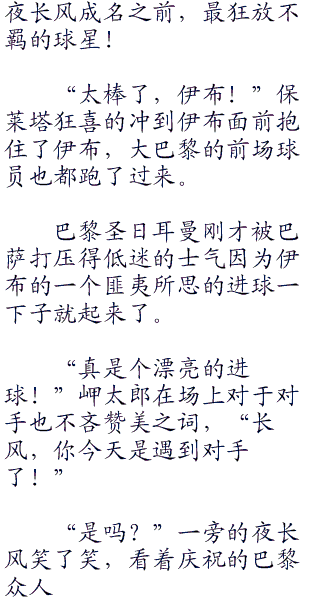 夜长风成名之前，最狂放不
羁的球星！
“太棒了，伊布！”保
莱塔狂喜的冲到伊布面前抱
住了伊布，大巴黎的前场球
员也都跑了过来。
巴黎圣日耳曼刚才被巴
萨打压得低迷的士气因为伊
布的一个匪夷所思的进球一
下子就起来了。
“真是个漂亮的进
球！”岬太郎在场上对于对
手也不吝赞美之词，“长
风，你今天是遇到对手
了！”
“是吗？”一旁的夜长
风笑了笑，看着庆祝的巴黎
众人